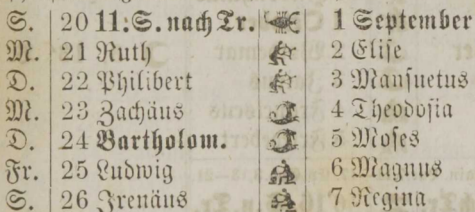 S. 20 11. S. nach Tr. 1 September
M. 21 Ruth 2 Elise
D. 22 Philibert 3 Mansuetus
M. 23 Zachäus 4 Theodosia
D. 24 Bartholom. 5 Moses
Fr. 25 Ludwig 6 Magnus
S. 26 Irenäus 7 Regina